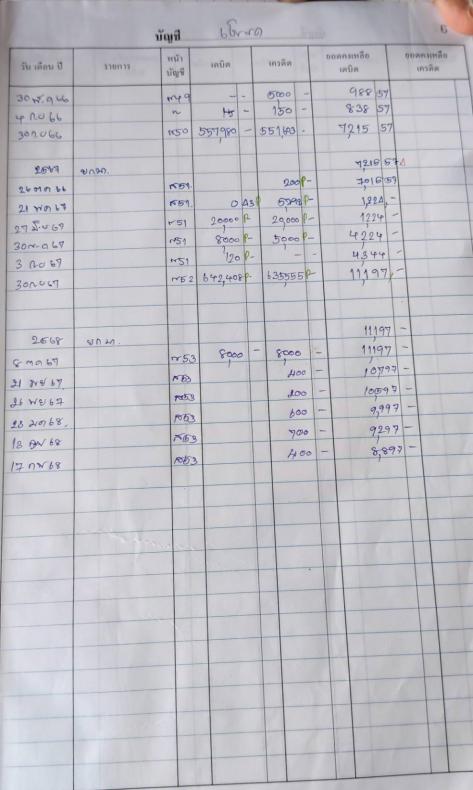 บัญชี เงินสด 6
วัน เดือน ปี รายการ หน้าบัญชี เดบิต เครดิต ยอดคงเหลือเดบิต ยอดคงเหลือเครดิต
30 พ.ค 66 ร49 - - 5000 - 988 57
4 ก.ย 66 " - 150 - 838 57
30 ก.ย 66 ร50 557,980 - 551,603 - 7,215 57
2567 ยกมา 7215 57
26 ต.ค 66 ร51 200 - 7,015 57
21 พ.ค 67 ร51 0 43 5,792 - 1,224 -
27 มิ.ย 67 ร51 20,000 - 20,000 - 1,224 -
30 ก.ค 67 ร51 8000 - 5000 - 4,224 -
3 ก.ย 67 ร51 120 - - - 4,344 -
30 ก.ย 67 ร52 642,408 - 635,555 - 11,197 -
2568 ยกมา 11,197 -
8 ต.ค 67 ร53 8000 - 8000 - 11,197 -
21 พ.ย 67 ร53 400 - 10,797 -
26 พ.ย 67 ร53 200 - 10,597 -
23 ม.ค 68 ร53 600 - 9,997 -
13 ก.พ 68 ร53 700 - 9,297 -
17 ก.พ 68 ร53 400 - 8,897 -